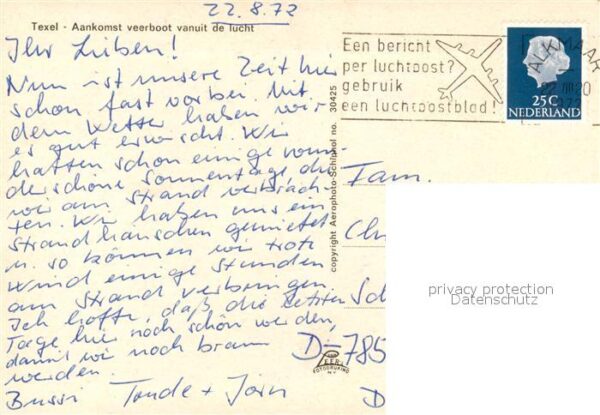 22.8.72
Texel - Aankomst veerboot vanuit de lucht
Ihr Lieben!
Nun ist unsere Zeit hier
schon fast vorbei. Mit
dem Wetter haben wir
es gut erwischt. Wir
hatten schon einige wun-
derschöne Sonnentage, die
wir am Strand verbrach-
ten. Wir haben uns ein
Strandhäuschen gemietet
u. so können wir trotz
Wind einige Stunden
am Strand verbringen.
Ich hoffe, daß die letzten
Tage hier noch schön werden,
damit wir noch braun
werden.
Bussi Tande + Jörn
copyright Aerophoto-Schiphol no. 30425
Een bericht
per luchtpost?
gebruik
een luchtpostblad!
ALKMAAR
25C
NEDERLAND
Fam.
Ch
Sch
D-785
D
FOTODRUKIND
N.V.
privacy protection
Datenschutz